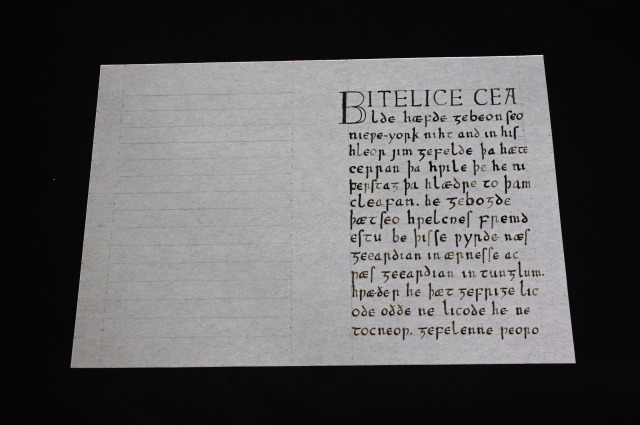 BITELICE CEA
lde hæfde ᵹebeon seo
niepe-york niht and in his
hleor jim ᵹefelde þa hæte
cerran þa hƿile þe he ni
þerstaᵹ þa hlædre to þam
cleafan. he ᵹeboᵹde
þæt seo hƿelcnes fremd
estu be þisse ƿyrde næs
ᵹeeardian in ærnesse ac
ƿæs ᵹeeardian in tunᵹlum.
hƿæðer he þæt ᵹefriᵹe lic
ode oððe ne licode he ne
tocneoƿ. ᵹefelenne ƿeoro